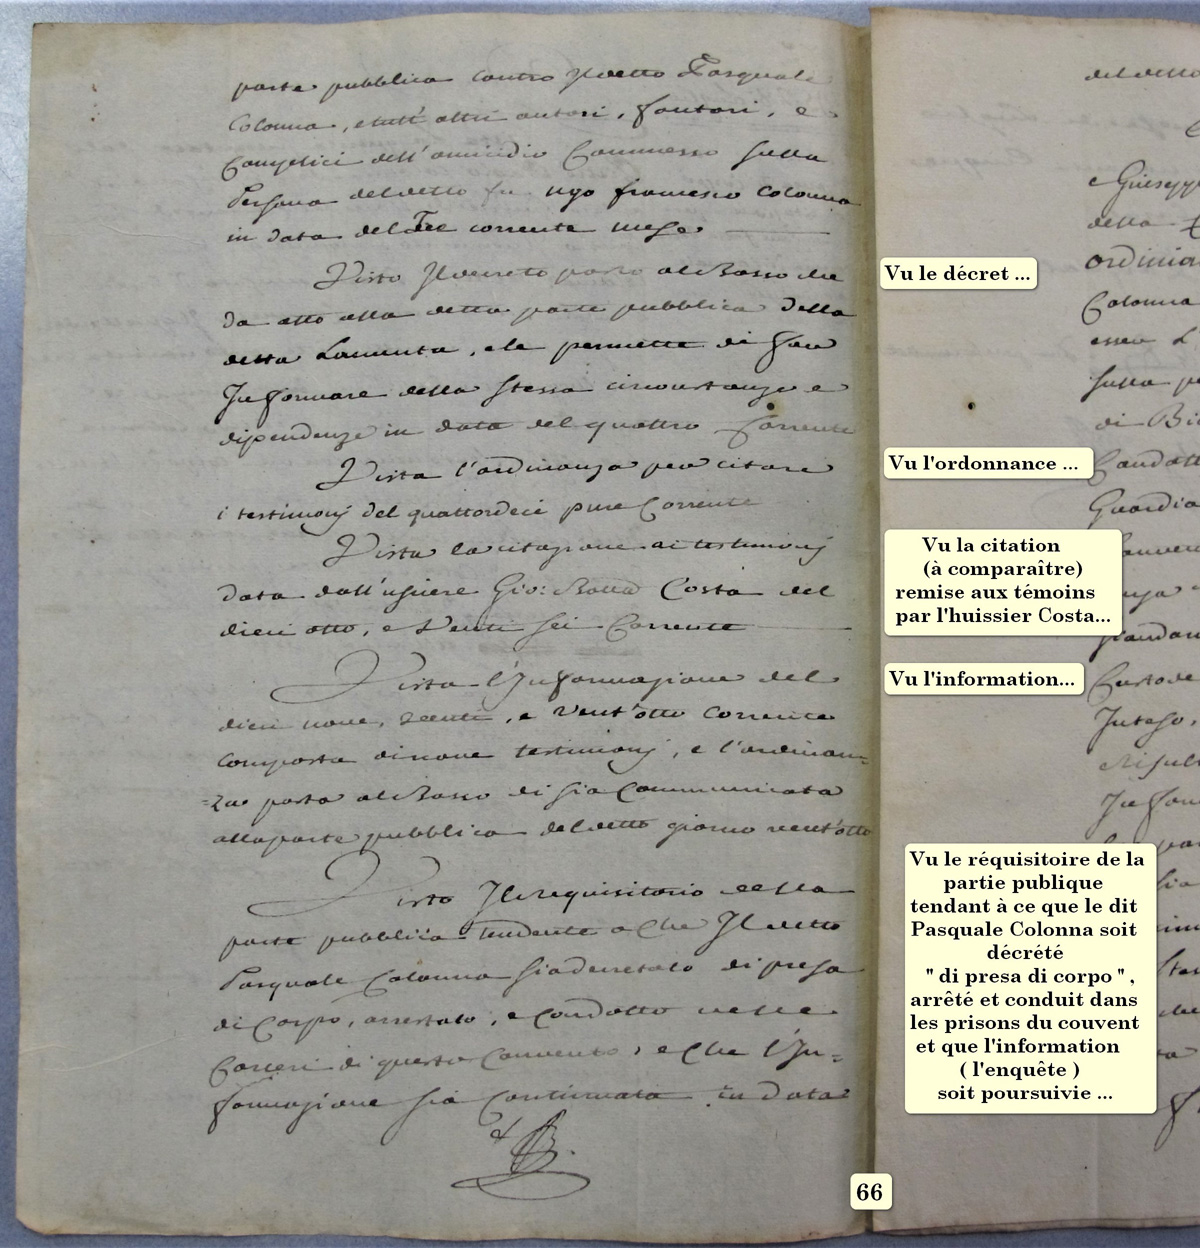 parte pubblica contro Il detto Pasquale
Colonna, e tutt'altri autori, fautori, e
Complici dell'omicidio Commesso sulla
Persona del detto fu ugo francesco Colonna
in data del Tre corrente mese
Visto Il decreto posto al Basso che
da atto alla detta parte pubblica della
detta Lamenta, e le permette di far
Informare della stessa circonstanze e
dipendenze in data del quattro Corrente
Vista l'ordinanza per citare
i testimonj del quattordeci pure Corrente
Vista la citazione ai testimonj
data dall'usciere Gio: Batta Costa del
dieci otto, e Venti sei Corrente
Vista l'Informazione del
dieci nove, venti, e vent'otto corrente
composta di nove testimonj, e l'ordinan=
=za posta al Basso di sia Communicata
alla parte pubblica del detto giorno vent'otto
Visto Il requisitorio della
parte pubblica tendente a Che Il detto
Pasquale Colonna sia decretato di presa
di Corpo, arrestato, e Condotto nelle
Carceri di questo Convento, e Che l'In=
formazione sia Continuata in data
del detto
e Giusepp
della
ordinan
Colonna
esser L
sulla pe
di Bi
Condott
Guardia
Custode
Inteso,
Risult
Infor
Vu le décret ...
Vu l'ordonnance ...
Vu la citation
(à comparaître)
remise aux témoins
par l'huissier Costa...
Vu l'information...
Vu le réquisitoire de la
partie publique
tendant à ce que le dit
Pasquale Colonna soit
décrété
" di presa di corpo " ,
arrêté et conduit dans
les prisons du couvent
et que l'information
( l'enquête )
soit poursuivie ...
66